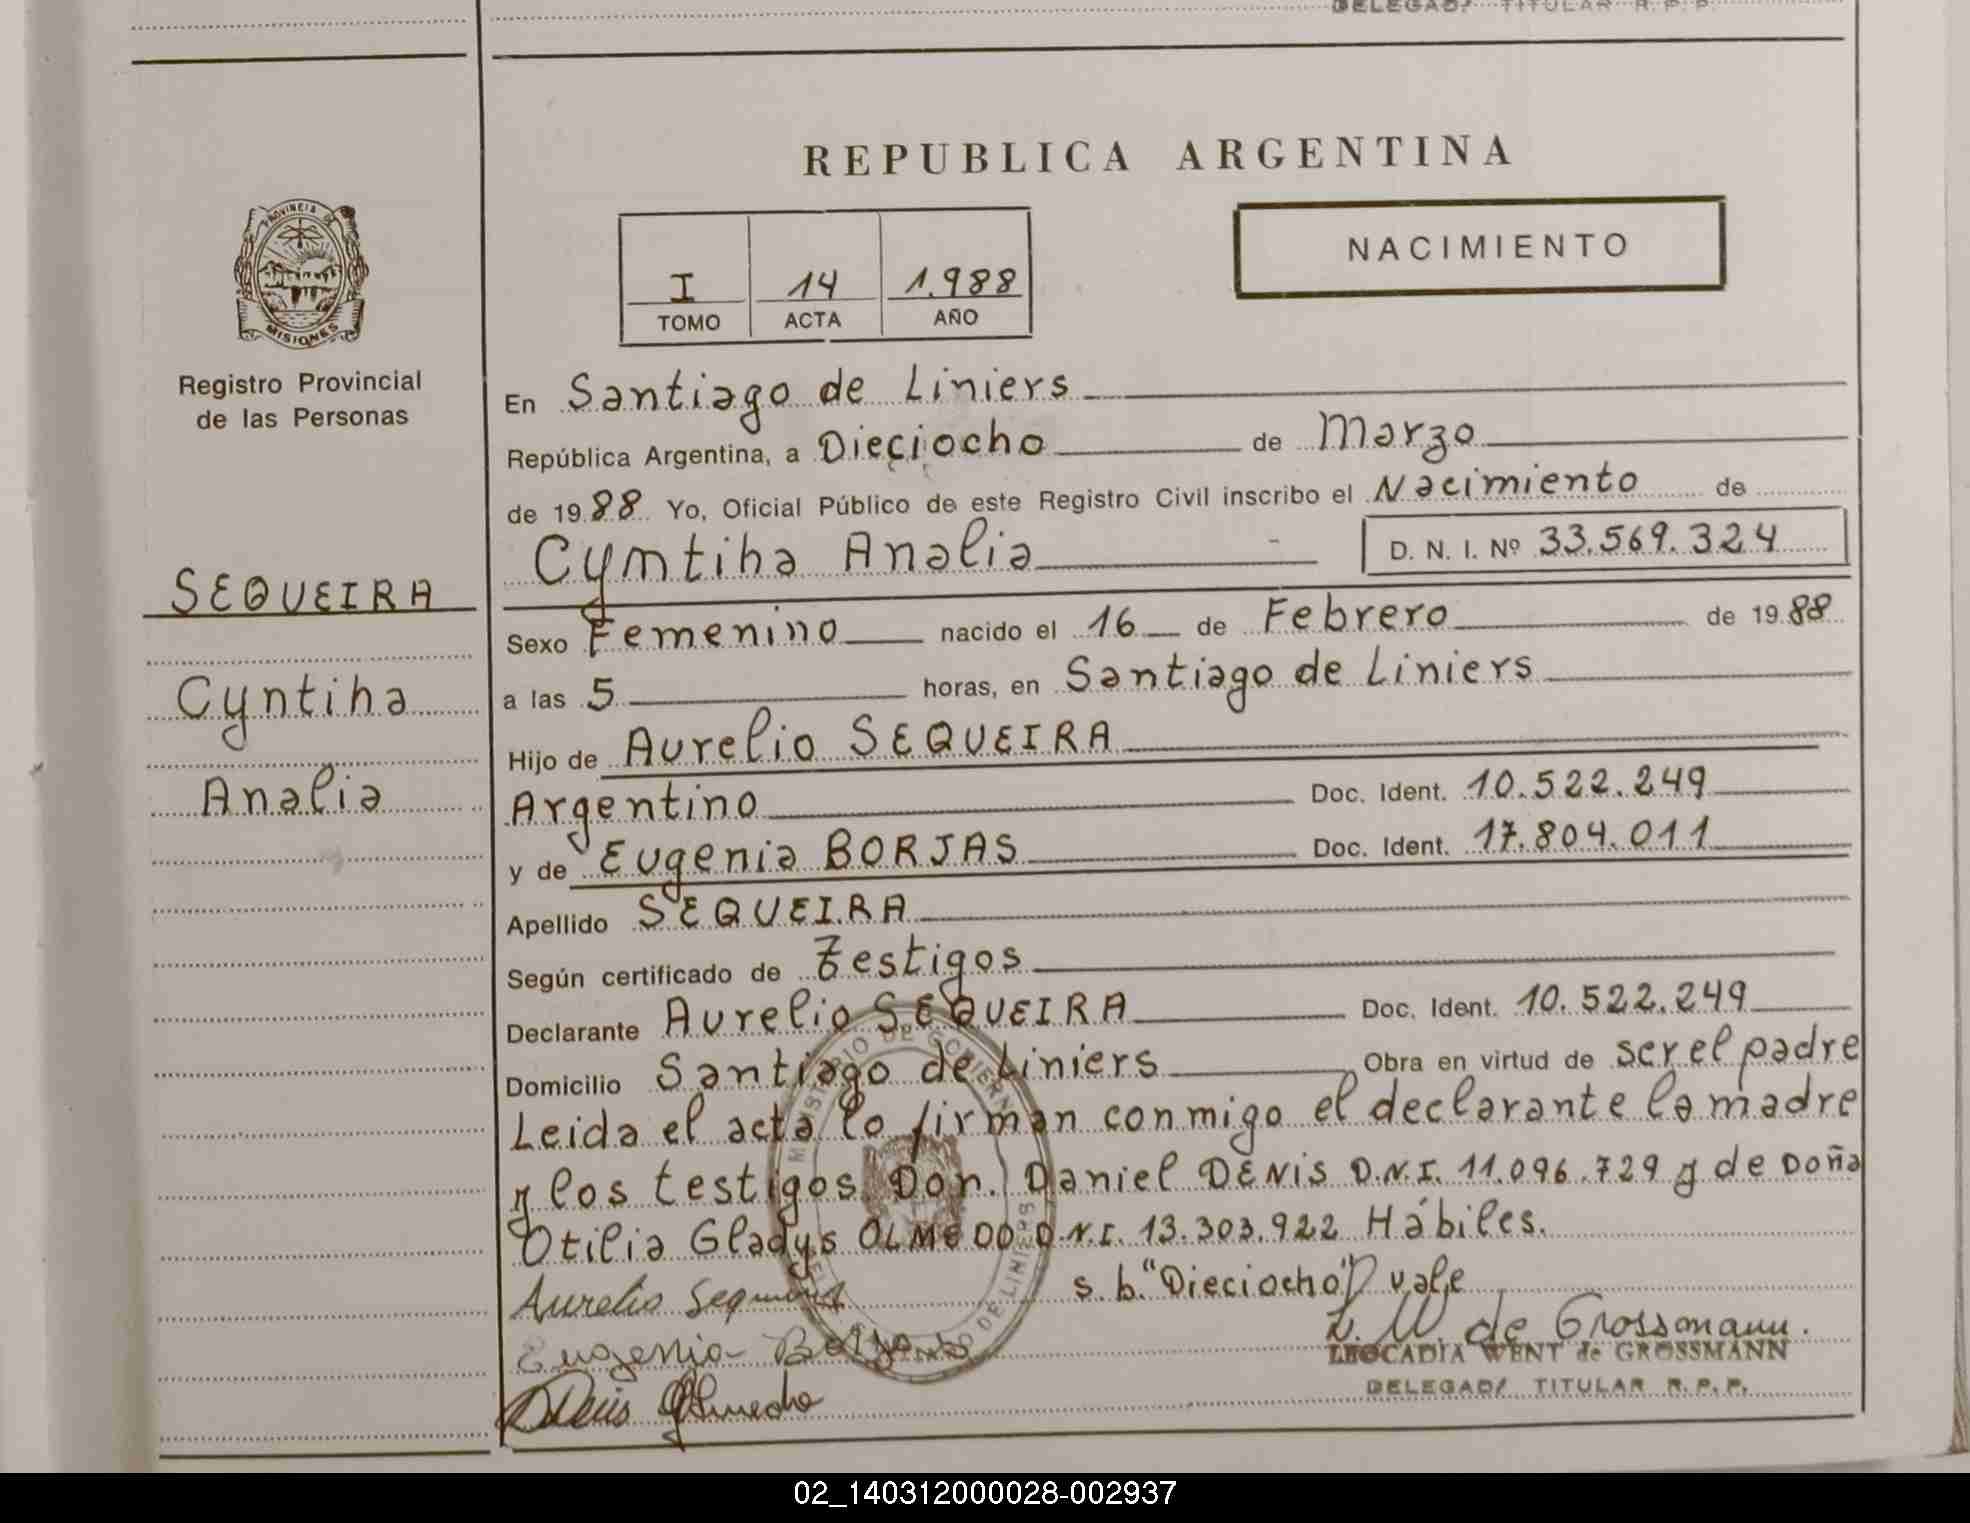 DELEGAD/ TITULAR R.P.P.
REPUBLICA ARGENTINA
PROVINCIA DE
MISIONES
I 14 1.988
TOMO ACTA AÑO
NACIMIENTO
Registro Provincial
de las Personas
SEQUEIRA
Cyntiha
Analia
En Santiago de Liniers
República Argentina, a Dieciocho de Marzo
de 1988 Yo, Oficial Público de este Registro Civil inscribo el Nacimiento de
Cymtiha Analia D. N. I. Nº 33.569.324
Sexo Femenino nacido el 16 de Febrero de 1988
a las 5 horas, en Santiago de Liniers
Hijo de Aurelio SEQUEIRA
Argentino Doc. Ident. 10.522.249
y de Eugenia BORJAS Doc. Ident. 17.804.011
Apellido SEQUEIRA
Según certificado de Testigos
Declarante Aurelio SEQUEIRA Doc. Ident. 10.522.249
Domicilio Santiago de Liniers Obra en virtud de ser el padre
Leida el acta lo firman conmigo el declarante la madre
y los testigos Don. Daniel DENIS D.N.I. 11.096.729 y de Doña
Otilia Gladys OLMEDO D.N.I. 13.303.922 Hábiles.
s. b. "Dieciocho" vale
Aurelio Sequeira
Eugenia Borja
Denis Olmedo
L. W. de Grossmann.
LEOCADIA WENT de GROSSMANN
DELEGAD/ TITULAR R.P.P.
MINISTERIO DE GOBIERNO
DE LINIERS
02_140312000028-002937